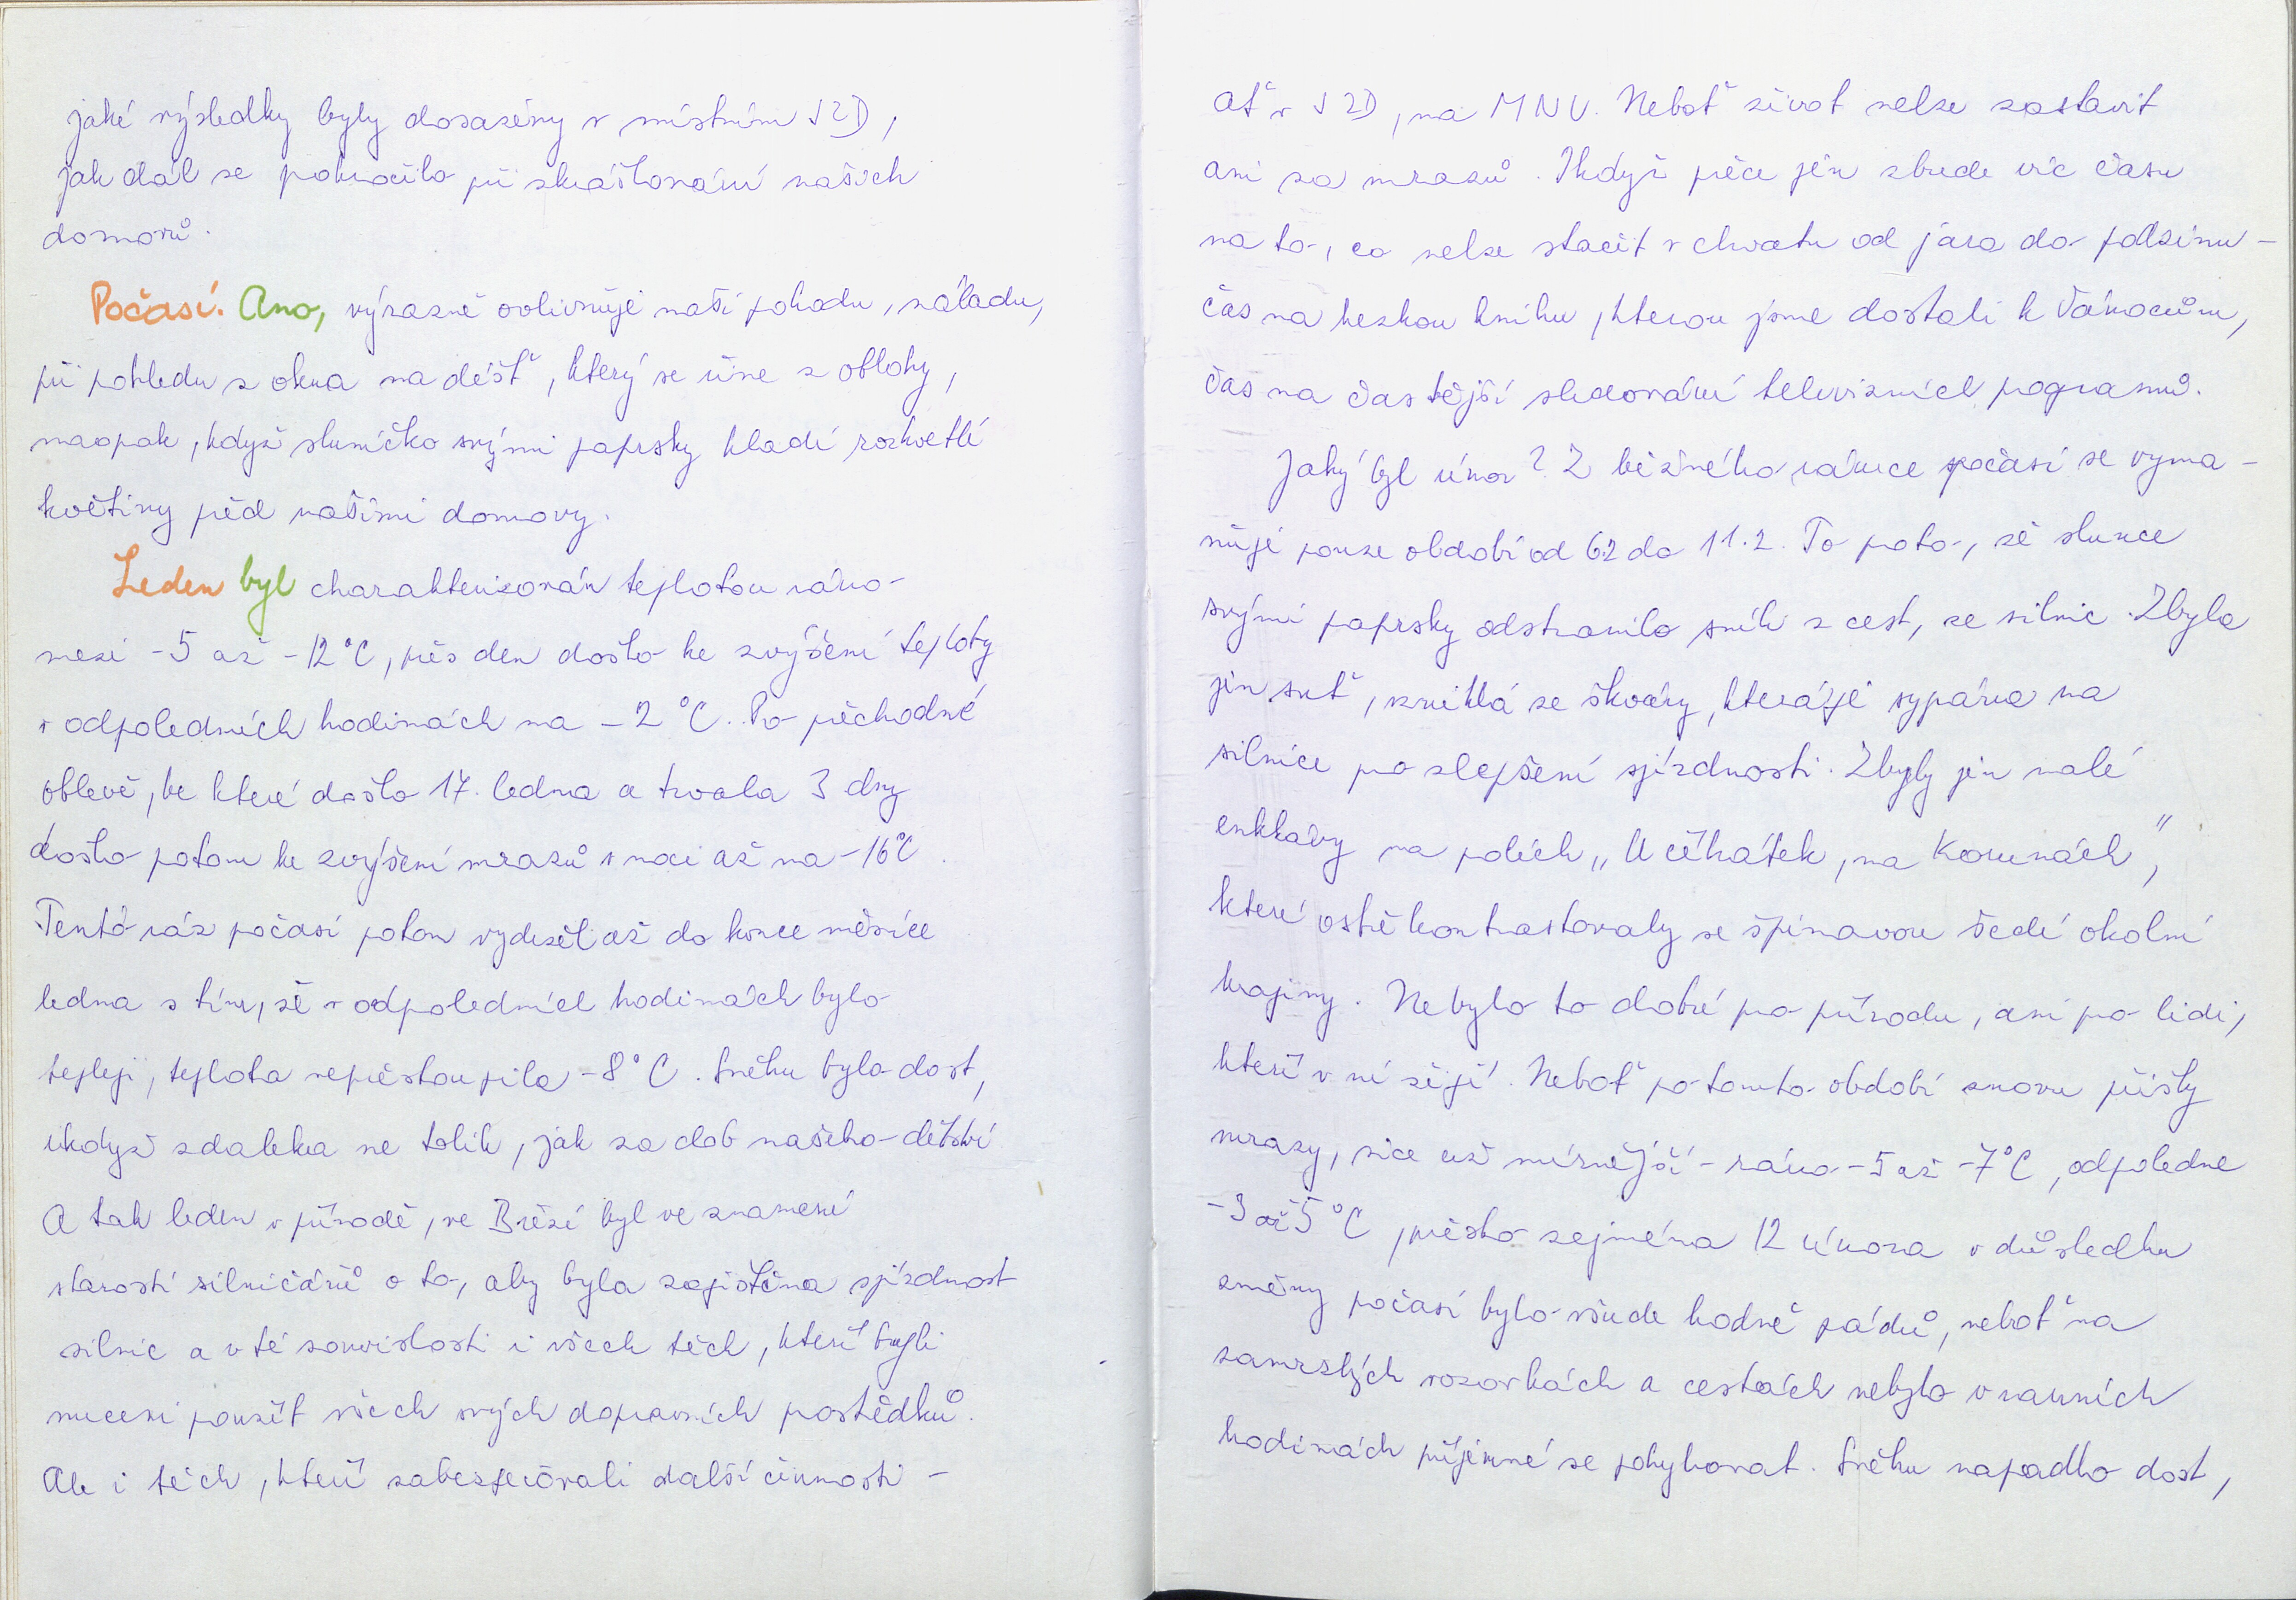 jaké výsledky byly dosaženy v místním JZD,
jak dál se pokročilo při zkrášlování našich
domovů.
Počasí. Ano, výrazně ovlivňuje naši pohodu, náladu,
při pohledu z okna na déšť, který se řine z oblohy,
naopak, když sluníčko svými paprsky hladí rozkvetlé
květiny před našimi domovy.
Leden byl charakterizován teplotou ráno
mezi -5 až -12°C, přes den došlo ke zvýšení teploty
v odpoledních hodinách na -2°C. Po přechodné
oblevě, ke které došlo 17. ledna a trvala 3 dny
došlo potom ke zvýšení mrazů v noci až na -16°C.
Tento ráz počasí potom vydržel až do konce měsíce
ledna s tím, že v odpoledních hodinách bylo
tepleji, teplota nepřestoupila -8°C. Sněhu bylo dost,
ikdyž zdaleka ne tolik, jak za dob našeho dětství
A tak leden v přírodě, ve Březí byl ve znamení
starosti silničářů o to, aby byla zajištěna sjízdnost
silnic a v té souvislosti i všech těch, kteří byli
nuceni použít všech svých dopravních prostředků.
Ale i těch, kteří zabezpečovali další činnosti -
ať v JZD, na MNV. Neboť život nelze zastavit
ani za mrazů. Ikdyž přece jen zbude víc času
na to, co nelze stačit v chvatu od jara do podzimu -
čas na hezkou knihu, kterou jsme dostali k Vánocům,
čas na častější sledování televizních pogramů.
Jaký byl únor? Z běžného rámce počasí se vyma-
ňuje pouze období od 6.2 do 11.2. To proto, že slunce
svými paprsky odstranilo sníh z cest, ze silnic. Zbyla
jen suť, vzniklá ze škváry, která je sypána na
silnice pro zlepšení sjízdnosti. Zbyly jen malé
enklávy na polích „U Číhátek, na Korunách",
které ostře kontrastovaly se špinavou šedí okolní
krajiny. Nebylo to dobré pro přírodu, ani pro lidi,
kteří v ní žijí. Neboť po tomto období znovu přišly
mrazy, sice už mírnější - ráno -5 až -7°C, odpoledne
-3 až 5°C, přesto zejména 12 února v důsledku
změny počasí bylo všude hodně pádů, neboť na
zamrzlých vozovkách a cestách nebylo v ranních
hodinách příjemné se pohybovat. Sněhu napadlo dost,